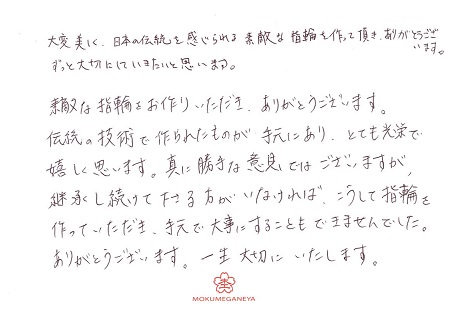 大変美しく、日本の伝統を感じられる素敵な指輪を作って頂き、ありがとうござ
います。
ずっと大切にしていきたいと思います。
素敵な指輪をお作りいただき、ありがとうございます。
伝統の技術で作られたものが手元にあり、とても光栄で
嬉しく思います。真に勝手な意見ではございますが、
継承し続けて下さる方がいなければ、こうして指輪を
作っていただき、手元で大事にすることもできませんでした。
ありがとうございます。一生大切にいたします。
MOKUMEGANEYA